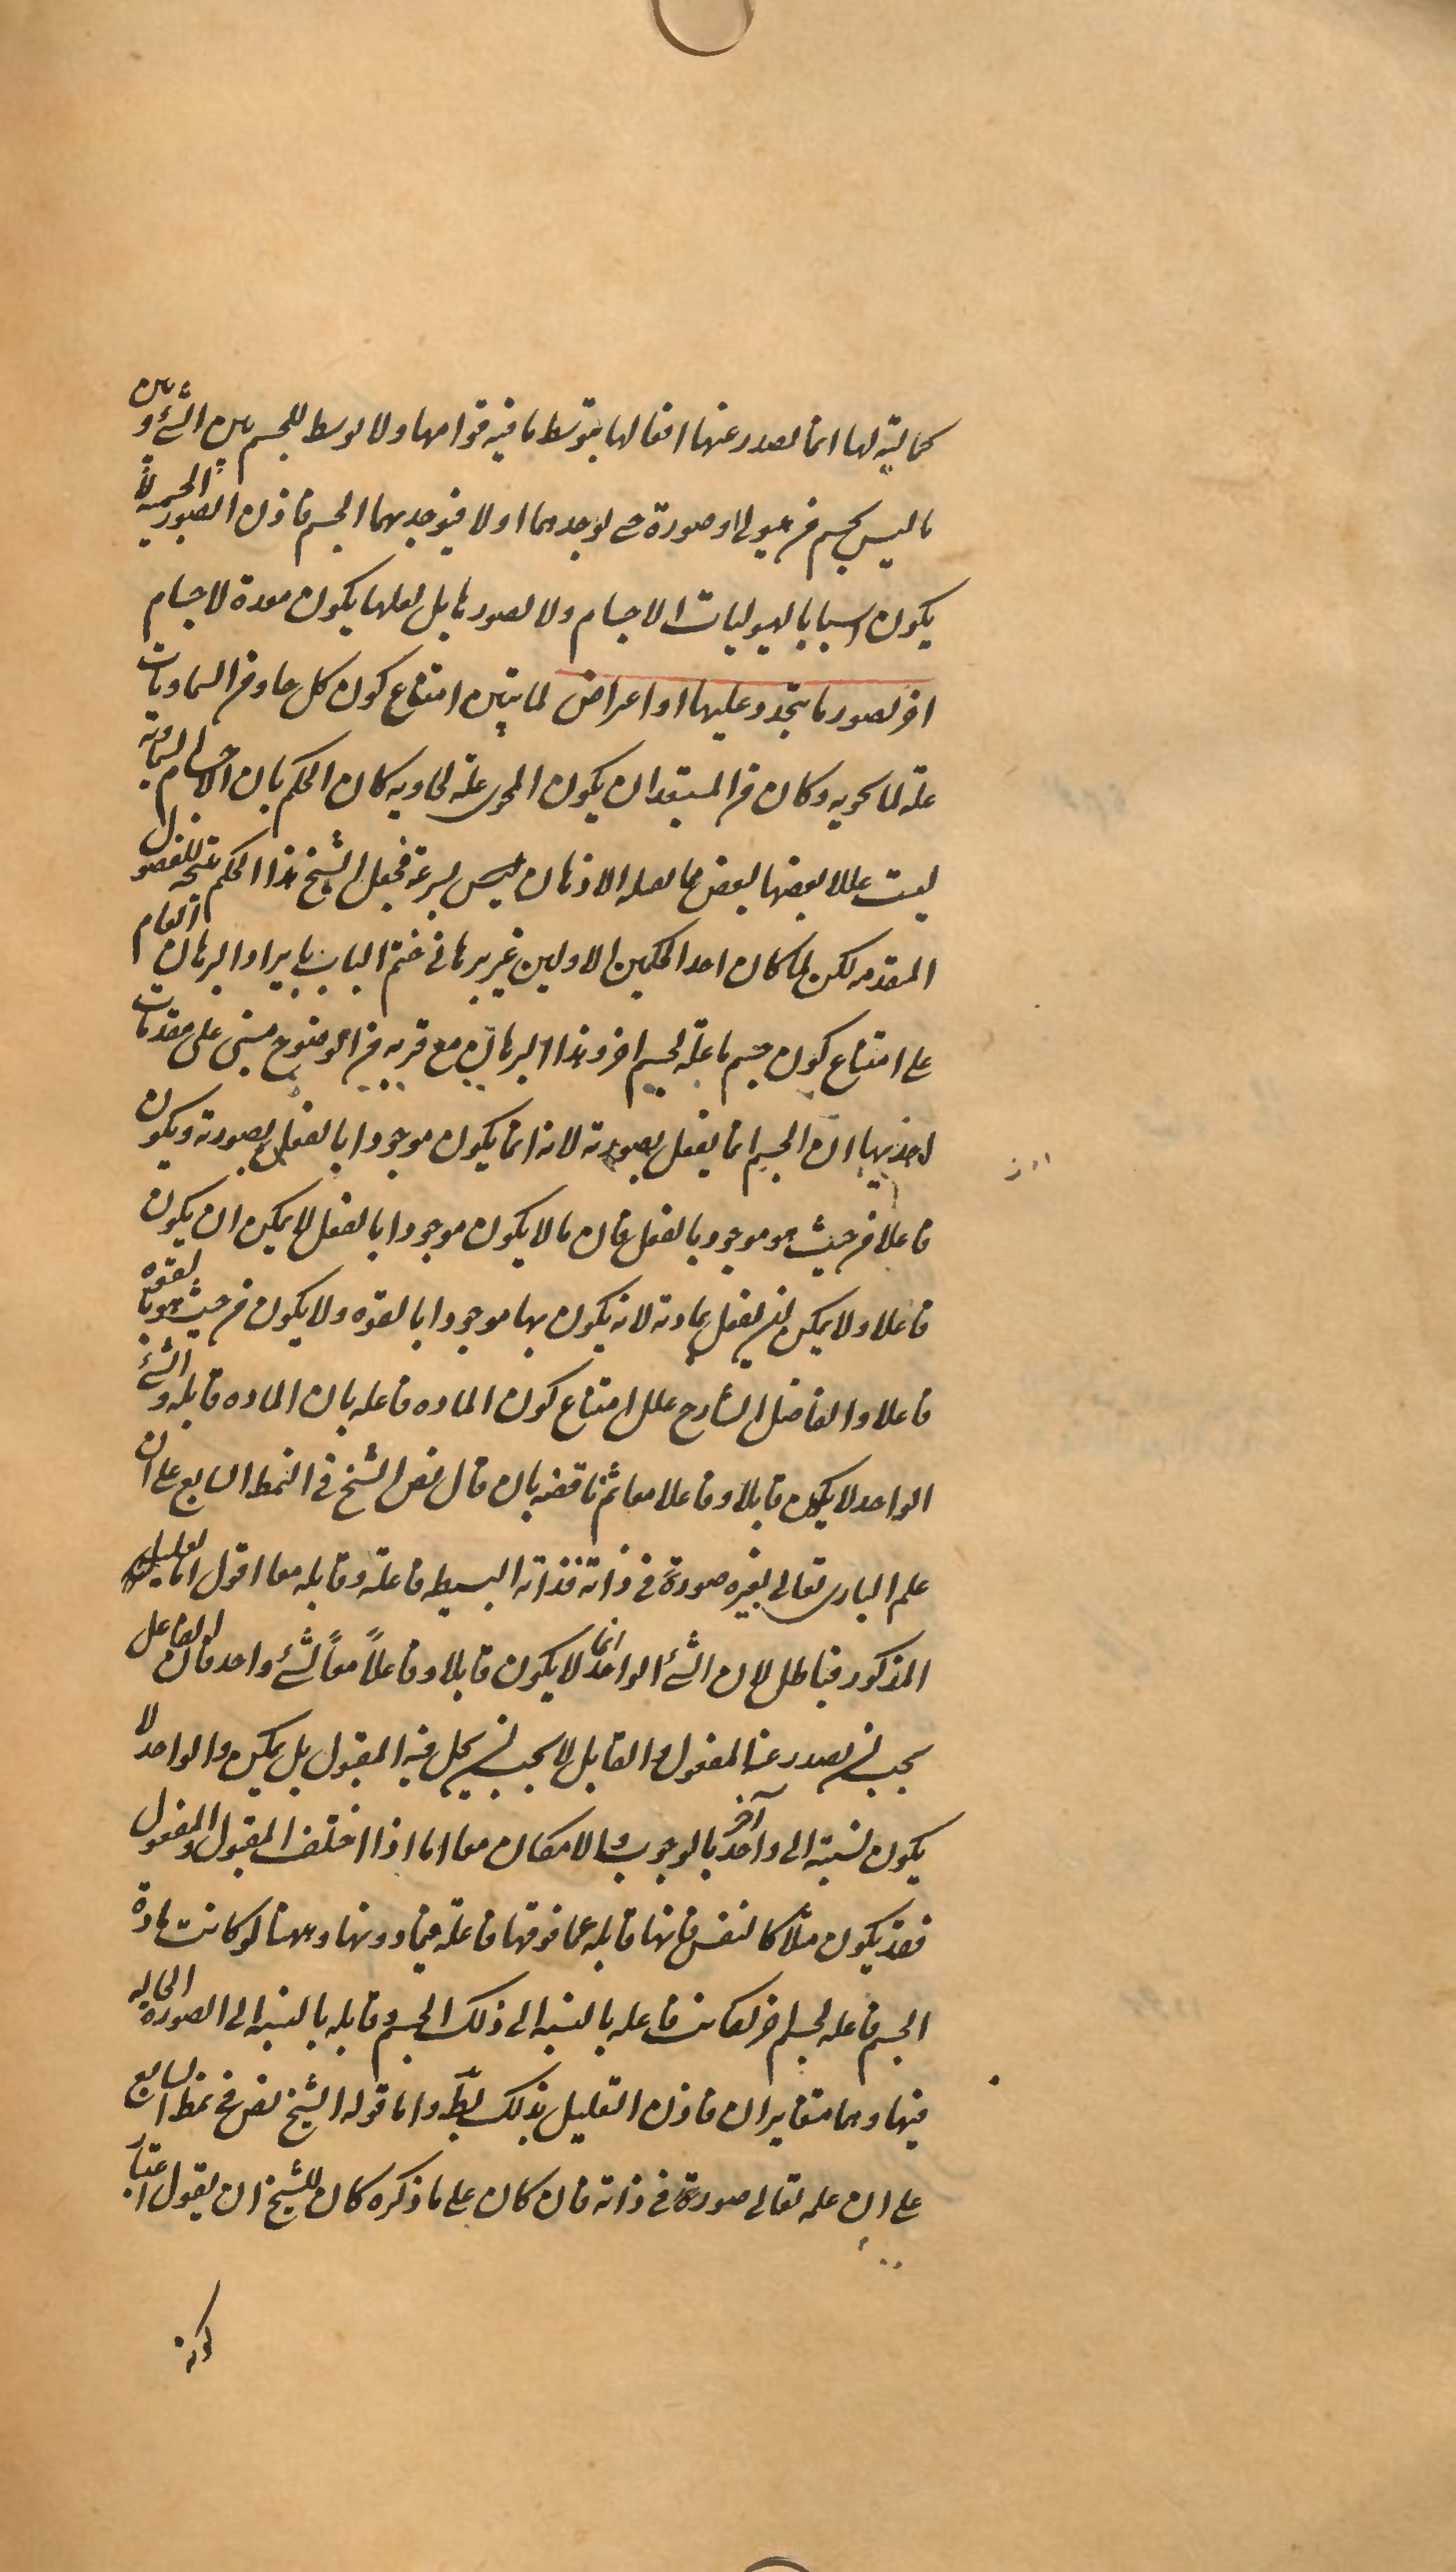 كمالية لها انما تصدر عنها افعالها بتوسط ما فيه قوامها ولا توسط للجسم بين الشئ وبين
ما ليس بجسم من هيولى او صورة حتى يوجدهما اولا فيوجد بهما الجسم فاذن الصور الجسمية لا
يكون اسبابا لهيوليات الاجسام ولا لصورها بل لعلها يكون معدة لاجسام
اخر لصور ما يتجدد عليها او اعراض لما تبين امتناع كون كل حاو من السماويات
علة لما يحويه وكان من المستبعد ان يكون المحوى علة لحاويه كان الحكم بان الاجسام السماوية
ليست عللا بعضها لبعض مما يقبله الاذهان بسرعة فجعل الشيخ هذا الحكم نتيجة للفصول
المتقدمه لكن لما كان احد الحكمين الاولين غير برهانى ختم الباب بايراد البرهان العام
على امتناع كون جسم ما علة لجسم اخر وهذا البرهان مع قربه من الوضوح مبنى على مقدمات
احديها ان الجسم انما يفعل بصورته لانه انما يكون موجودا بالفعل بصورته ويكون
فاعلا من حيث هو موجود بالفعل فان ما لا يكون موجودا بالفعل لا يمكن ان يكون
فاعلا ولا يمكن ان يفعل بمادته لانه يكون بها موجودا بالقوه ولا يكون من حيث هو بالقوه
فاعلا والفاضل الشارح علل امتناع كون الماده فاعله بان الماده قابله والشئ
الواحد لا يكون قابلا وفاعلا معا ثم ناقضه بان قال نص الشيخ فى النمط السابع على ان
علم البارى تعالى بغيره صورة فى ذاته فذاته البسيطه فاعلة وقابله معا اقول اما تعليله
المذكور فباطل لان الشئ الواحد انما لا يكون قابلا وفاعلاً معاً لشئ واحد فان الفاعل
يجب ان يصدر عنه المفعول والقابل لا يجب ان يحل فيه المقبول بل يمكن والواحد لا
يكون نسبته الى واحد آخر بالوجوب والامكان معا اما اذا اختلف المقبول والمفعول
فقد يكون مثلا كالنفس فانها قابله عما فوقها فاعلة فيما دونها وههنا لو كانت مادة
الجسم فاعله لجسم اخر لكانت فاعله بالنسبه الى ذلك الجسم وقابله بالنسبه الى الصورة الحالة
فيها وهما متغايران فاذن التعليل بذلك بط واما قوله الشيخ نص فى نمط السابع
على ان علمه تعالى صورة فى ذاته فان كان على ما ذكره كان للشيخ ان يقول اعتبار